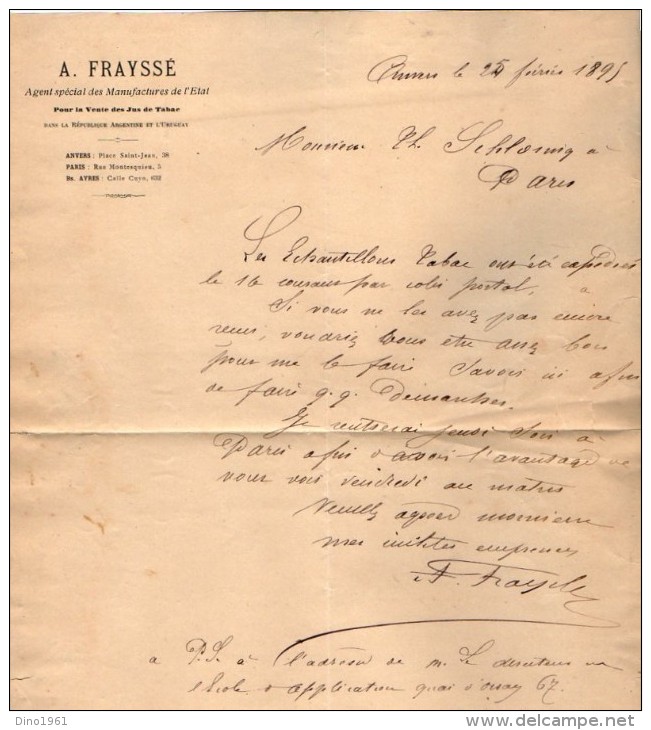 A. FRAYSSÉ
Agent spécial des Manufactures de l'Etat
Pour la Vente des Jus de Tabac
DANS LA RÉPUBLIQUE ARGENTINE ET L'URUGUAY
ANVERS : Place Saint-Jean, 38
PARIS : Rue Montesquieu, 5
Bs. AYRES : Calle Cuyo, 632
Anvers le 24 février 1895
Monsieur Th. Schlœsing à
Paris
Les Echantillons Tabac ont été expédiés
le 16 courant par colis postal, a
Si vous ne les avez pas encore
reçus, voudriez vous être assez bon
pour me le faire savoir ici afin
de faire q.q. démarches.
Je rentrerai jeudi soir à
Paris afin d'avoir l'avantage de
vous voir vendredi au matin
Veuillez agréer monsieur
mes civilités empressées
A. Frayssé
a P.S. à l'adresse de M. le directeur
école d'application quai d'orsay 67.
Dino1961
www.delcampe.net